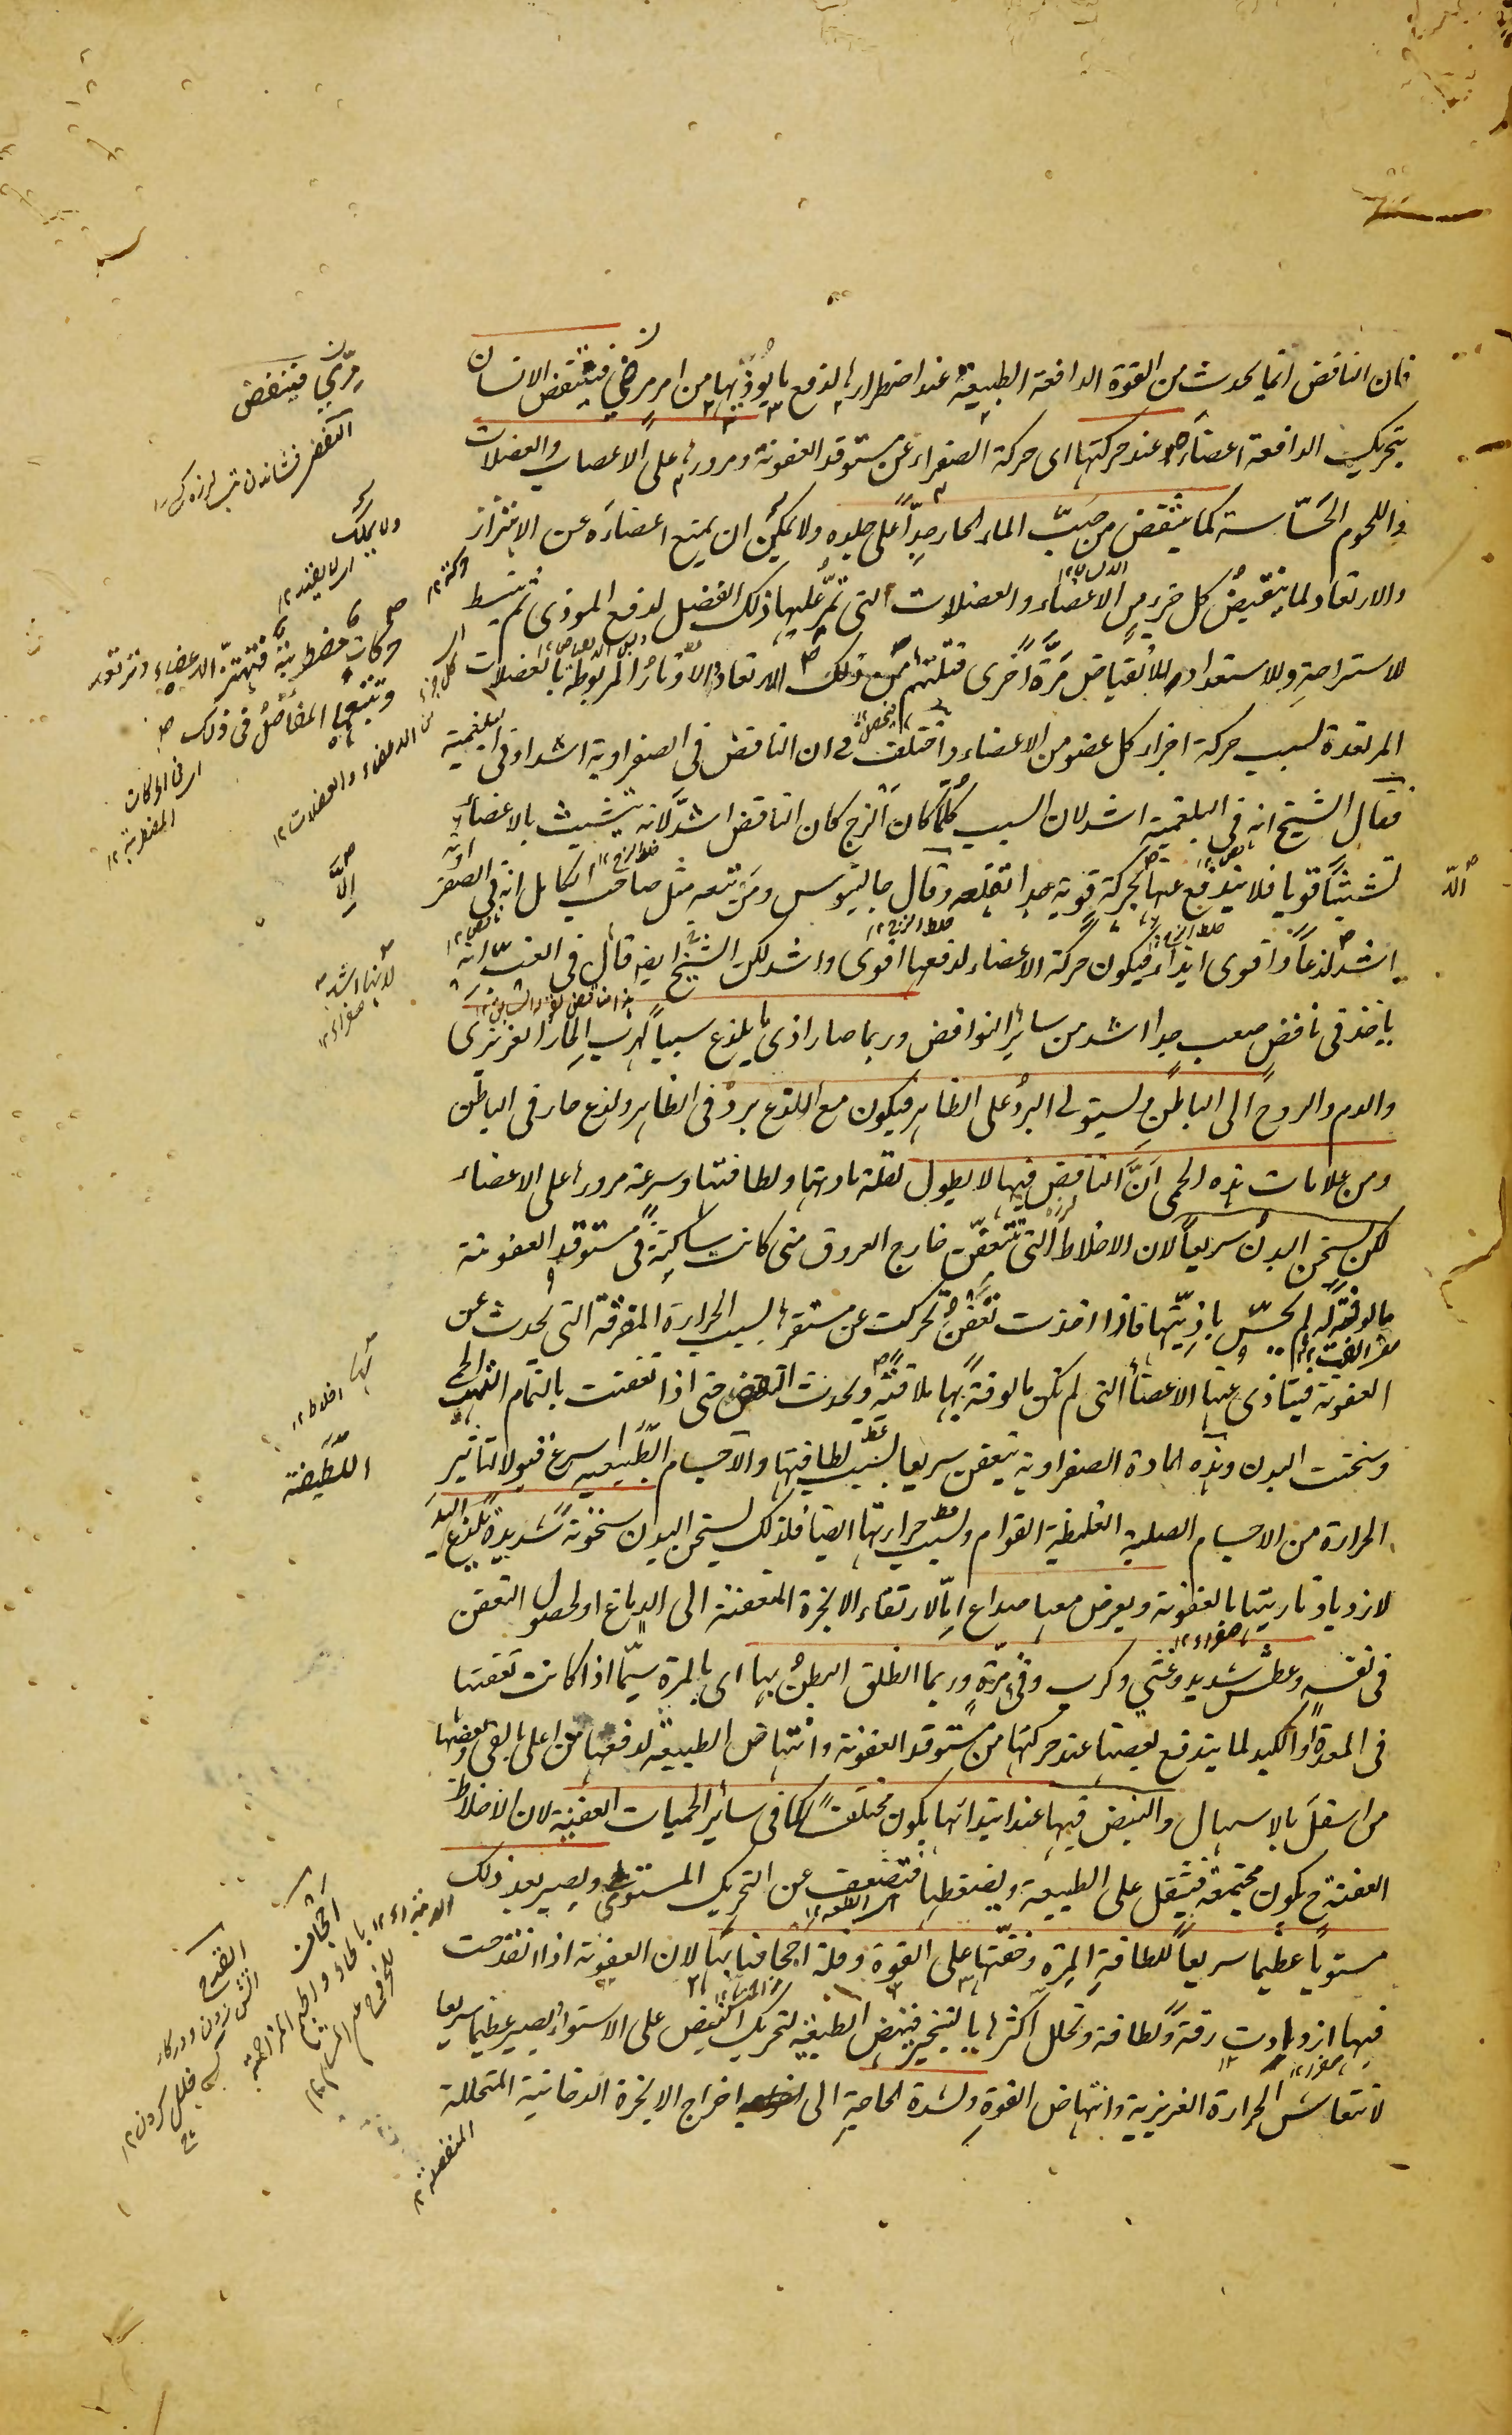 فان النافض انما يحدث من القوة الدافعة الطبيعية عند اضطرارها لدفع ما يؤذيها من امر مرضي فينتفض الانسان
بتحريك الدافعة اعضاءه عند حركتها اى حركة الصفراء عن مستوقد العفونة ومرورها على الاعصاب والعضلات
واللحوم الحسّاسة كما ينتفض من صبّ الماء الحار جدّاً على جلده ولا يمكن ان يمنع اعضاءه عن الاهتزاز
والارتعاد لما ينقبض كل جزء من الاعضاء والعضلات التى تمرّ عليها ذلك الفضل لدفع الموذى ثم ينبسط
للاستراحة وللاستعداد للانقباض مرّة اخرى فتلتئم من ذلك الارتعاد والاوتار المربوطة بالعضلات
المرتعدة لسبب حركة اجزاء كل عضو من الاعضاء واختلف فى ان النافض فى الصفراوية اشد او فى البلغمية
فقال الشيخ انه فى البلغمية اشد لان السبب كلّما كان الزج كان النافض اشد لانه يتشبث بالاعضاء
تشبثاً قويا فلا يندفع عنها الا بحركة قوية جدا تقلعه وقال جالينوس ومن تبعه مثل صاحب الكامل انه فى الصفراوية
اشد لذعاً واقوى ايذاء فيكون حركة الاعضاء لدفعها اقوى واشد لكن الشيخ ايضا قال فى الغبّ انه
ياخذ فى نافض صعب جدا اشد من سائر النوافض وربما صار اذى ما يلذع سبباً لهرب الحار الغريزى
والدم والروح الى الباطن ويستولى البرد على الظاهر فيكون مع اللذع برد فى الظاهر ولذع حار فى الباطن
ومن علامات هذه الحمى انّ النافض فيها لا يطول لقلة مادتها ولطافتها وسرعة مرورها على الاعضاء
لكن يسخن البدن سريعاً لان الاخلاط التى تتعفن خارج العروق متى كانت ساكنة فى مستوقد العفونة
مالوفة له لم يحسّ باذيتها فاذا اخذت تتعفن تحركت عن مستقرها لسبب الحرارة المفرقة التى تحدث عن
العفونة فيتاذى عنها الاعضاء التى لم تكن مالوفة بها ملاقية ويحدث النافض حتى اذا تعفنت بالتمام التهبت الحمى
وسخنت البدن وهذه المادة الصفراوية يتعفن سريعا لسبب لطافتها والاجسام اللطيفة اسرع قبولا لتاثير
الحرارة من الاجسام الصلبة الغليظة القوام ولسبب حرارتها ايضا فلذلك يسخن البدن سخونة شديدة تلذع اليد
لازدياد ناريتها بالعفونة ويعرض معها صداع اما لارتقاء الابخرة المتعفنة الى الدماغ او لحصول التعفن
فى نفسه وعطش شديد وغثى وكرب وقئ مرّة وربما انطلق البطن بها اى بالمرة سيّما اذا كانت تعفنها
فى المعدة او الكبد لما يندفع بعضها عند حركتها من مستوقد العفونة وانتهاض الطبيعة لدفعها من اعلى بالقئ وبعضها
من اسفل بالاسهال والنبض فيها عند ابتدائها يكون مختلفاً كما فى سائر الحميات العفنية لان الاخلاط
العفنة ح يكون مجتمعة فيثقل على الطبيعة ويضغطها فتضعف عن التحريك المستوى ويصير بعد ذلك
مستوياً عظيما سريعاً للطافة المرة وخفتها على القوة وقلة اجحافها بها لان العفونة اذا تقدمت
فيها ازدادت رقة ولطافة وتحلل اكثرها بالتبخير فينهض الطبيعة لتحريك النبض على الاستواء ويصير عظيما سريعا
لانتعاش الحرارة الغريزية وانتهاض القوة ولشدة الحاجة الى اخراج الابخرة الدخانية المتحللة
مرّي فينتفض
ولا يملك
حركات مضطربة فتهتز الاعضاء وترتعد
وتتبعها المفاصل فى ذلك
اى فى الحركات
المضطربة ١٢
من الاعضاء والعضلات ١٢
الّا
لانها اشد
صفراء ١٢
اخلاط ١٢
اللطيفة
القدح
المنفصلة ١٢